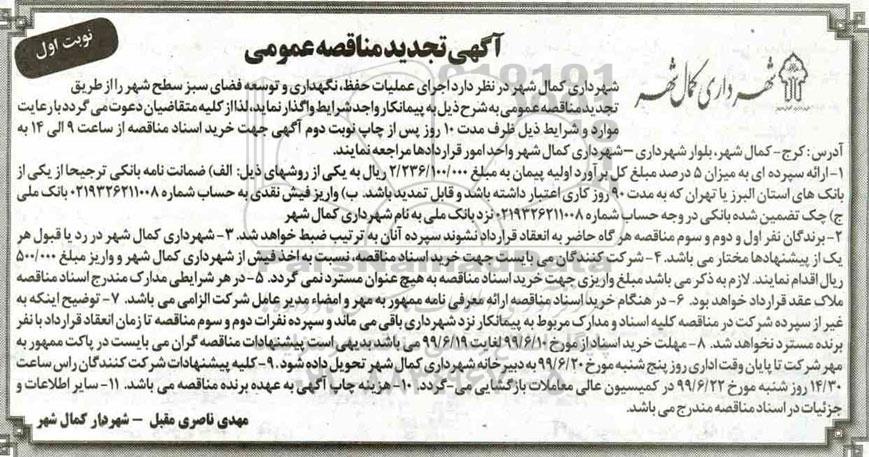 نوبت اول
آگهی تجدید مناقصه عمومی
شهرداری کمال شهر
شهرداری کمال شهر در نظر دارد اجرای عملیات حفظ، نگهداری و توسعه فضای سبز سطح شهر را از طریق
تجدید مناقصه عمومی به شرح ذیل به پیمانکار واجد شرایط واگذار نماید، لذا از کلیه متقاضیان دعوت می گردد با رعایت
موارد و شرایط ذیل ظرف مدت ۱۰ روز پس از چاپ نوبت دوم آگهی جهت خرید اسناد مناقصه از ساعت ۹ الی ۱۴ به
آدرس: کرج- کمال شهر، بلوار شهرداری –شهرداری کمال شهر واحد امور قراردادها مراجعه نمایند.
۱- ارائه سپرده ای به میزان ۵ درصد مبلغ کل برآورد اولیه پیمان به مبلغ ۲/۲۳۶/۱۰۰/۰۰۰ ریال به یکی از روشهای ذیل: الف) ضمانت نامه بانکی ترجیحا از یکی از
بانک های استان البرز یا تهران که به مدت ۹۰ روز کاری اعتبار داشته باشد و قابل تمدید باشد. ب) واریز فیش نقدی به حساب شماره ۰۲۱۹۳۲۶۲۱۱۰۰۸ بانک ملی
ج) چک تضمین شده بانکی در وجه حساب شماره ۰۲۱۹۳۲۶۲۱۱۰۰۸ نزد بانک ملی به نام شهرداری کمال شهر
۲- برندگان نفر اول و دوم و سوم مناقصه هر گاه حاضر به انعقاد قرارداد نشوند سپرده آنان به ترتیب ضبط خواهد شد. ۳- شهرداری کمال شهر در رد یا قبول هر
یک از پیشنهادها مختار می باشد. ۴- شرکت کنندگان می بایست جهت خرید اسناد مناقصه، نسبت به اخذ فیش از شهرداری کمال شهر و واریز مبلغ ۵۰۰/۰۰۰
ریال اقدام نمایند. لازم به ذکر می باشد مبلغ واریزی جهت خرید اسناد مناقصه به هیچ عنوان مسترد نمی گردد. ۵- در هر شرایطی مدارک مندرج اسناد مناقصه
ملاک عقد قرارداد خواهد بود. ۶- در هنگام خرید اسناد مناقصه ارائه معرفی نامه ممهور به مهر و امضاء مدیر عامل شرکت الزامی می باشد. ۷- توضیح اینکه به
غیر از سپرده شرکت در مناقصه کلیه اسناد و مدارک مربوط به پیمانکار نزد شهرداری باقی می ماند و سپرده نفرات دوم و سوم مناقصه تا زمان انعقاد قرارداد با نفر
برنده مسترد نخواهد شد. ۸- مهلت خرید اسناد از مورخ ۹۹/۶/۱۰ لغایت ۹۹/۶/۱۹ می باشد بدیهی است پیشنهادات مناقصه گران می بایست در پاکت ممهور به
مهر شرکت تا پایان وقت اداری روز پنج شنبه مورخ ۹۹/۶/۲۰ به دبیرخانه شهرداری کمال شهر تحویل داده شود. ۹- کلیه پیشنهادات شرکت کنندگان راس ساعت
۱۴/۳۰ روز شنبه مورخ ۹۹/۶/۲۲ در کمیسیون عالی معاملات بازگشایی می –گردد. ۱۰- هزینه چاپ آگهی به عهده برنده مناقصه می باشد. ۱۱- سایر اطلاعات و
جزئیات در اسناد مناقصه مندرج می باشد.
مهدی ناصری مقبل – شهردار کمال شهر